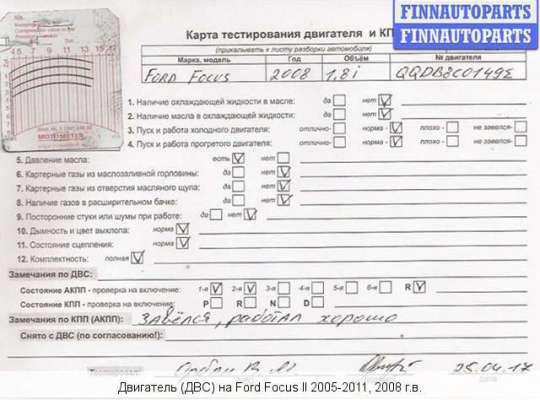 FINNAUTOPARTS
FINNAUTOPARTS
Карта тестирования двигателя и КП
(прикалывать к листу разборки автомобиля)
Марка, модель Год Объём № двигателя
FORD FOCUS 2008 1,8i
1. Наличие охлаждающей жидкости в масле: да нет
2. Наличие масла в охлаждающей жидкости: да нет
3. Пуск и работа холодного двигателя: отлично- норма - плохо - не завелся-
4. Пуск и работа прогретого двигателя: отлично- норма - плохо - не завелся-
5. Давление масла: есть нет
6. Картерные газы из маслозаливной горловины: да нет
7. Картерные газы из отверстия масляного щупа: да нет
8. Наличие газов в расширительном бачке: да нет
9. Посторонние стуки или шумы при работе: да нет
10. Дымность и цвет выхлопа: норма
11. Состояние сцепления: норма
12. Комплектность: полная
Замечания по ДВС:
Состояние АКПП - проверка на включение: 1-я 2-я 3-я 4-я 5-я 6-я R
Состояние КПП - проверка на включение: P R N D
Замечания по КПП (АКПП): ЗАВЁЛСЯ, работал хорошо
Снято с ДВС (по согласованию!):
25.04.17
Двигатель (ДВС) на Ford Focus II 2005-2011, 2008 г.в.